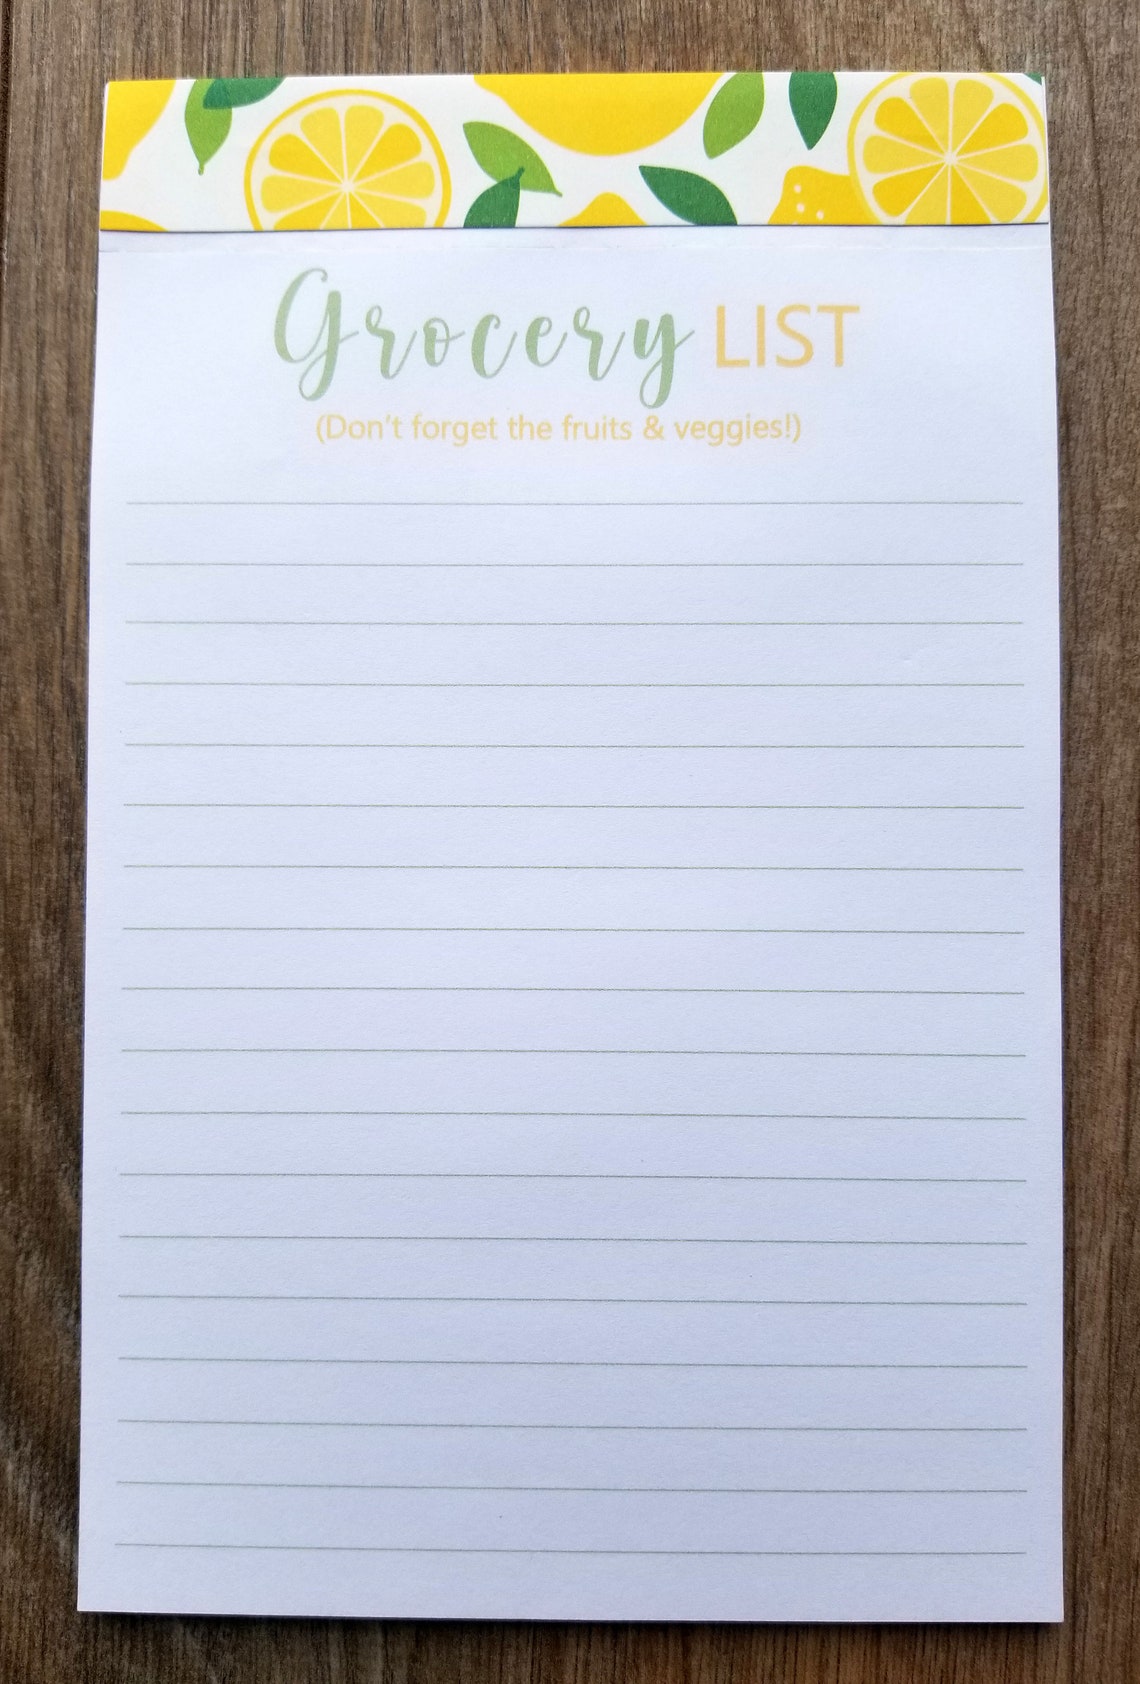 Grocery LIST
(Don't forget the fruits & veggies!)